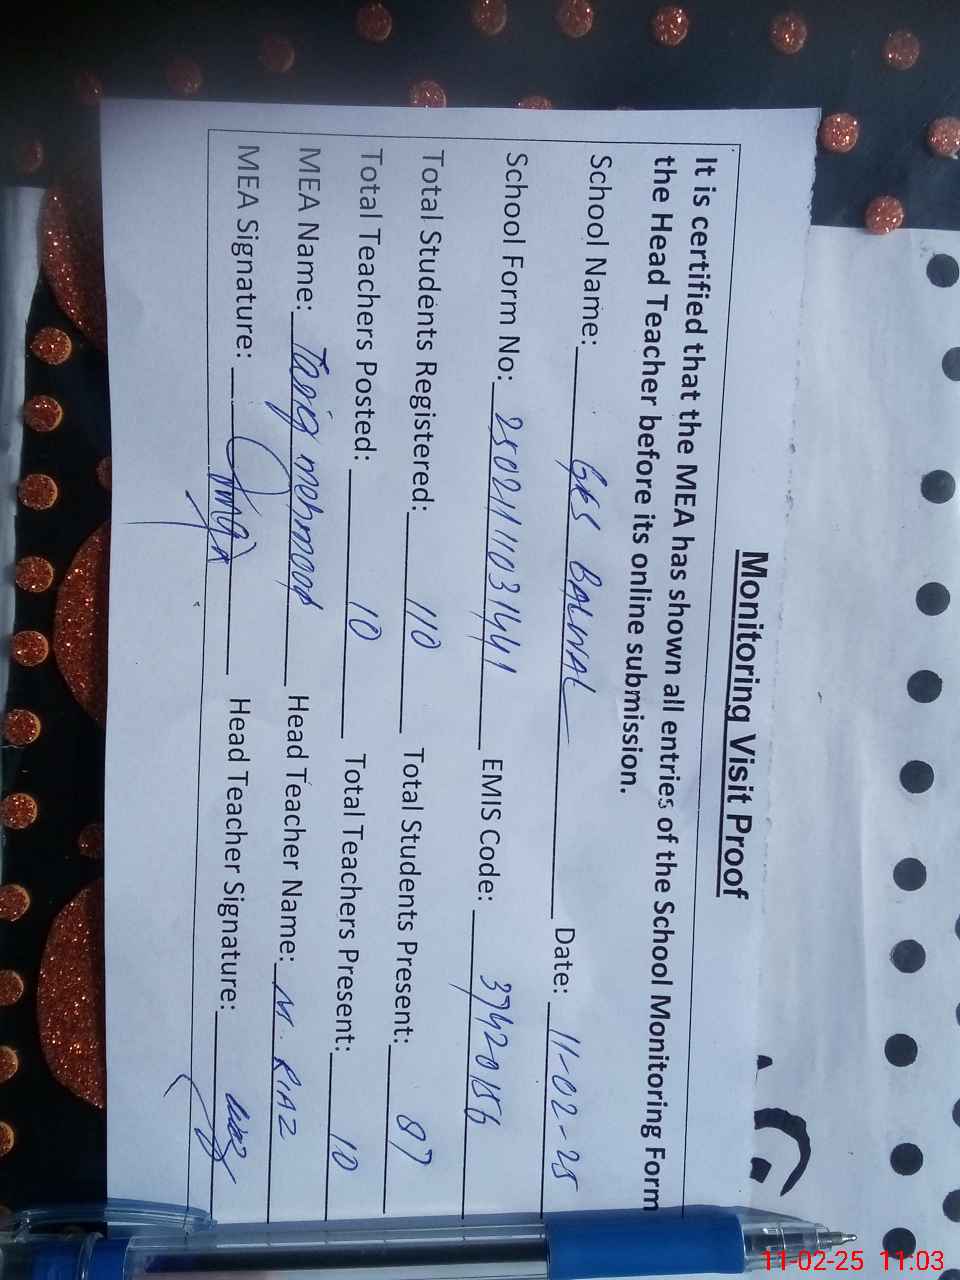 Monitoring Visit Proof
It is certified that the MEA has shown all entries of the School Monitoring Form
the Head Teacher before its online submission.
School Name: GES BALWAL Date: 11-02-25
School Form No: 2502111031441 EMIS Code: 37420156
Total Students Registered: 110 Total Students Present: 87
Total Teachers Posted: 10 Total Teachers Present: 10
MEA Name: Tariq mehmood Head Teacher Name: M. RIAZ
MEA Signature: Head Teacher Signature:
11-02-25 11:03